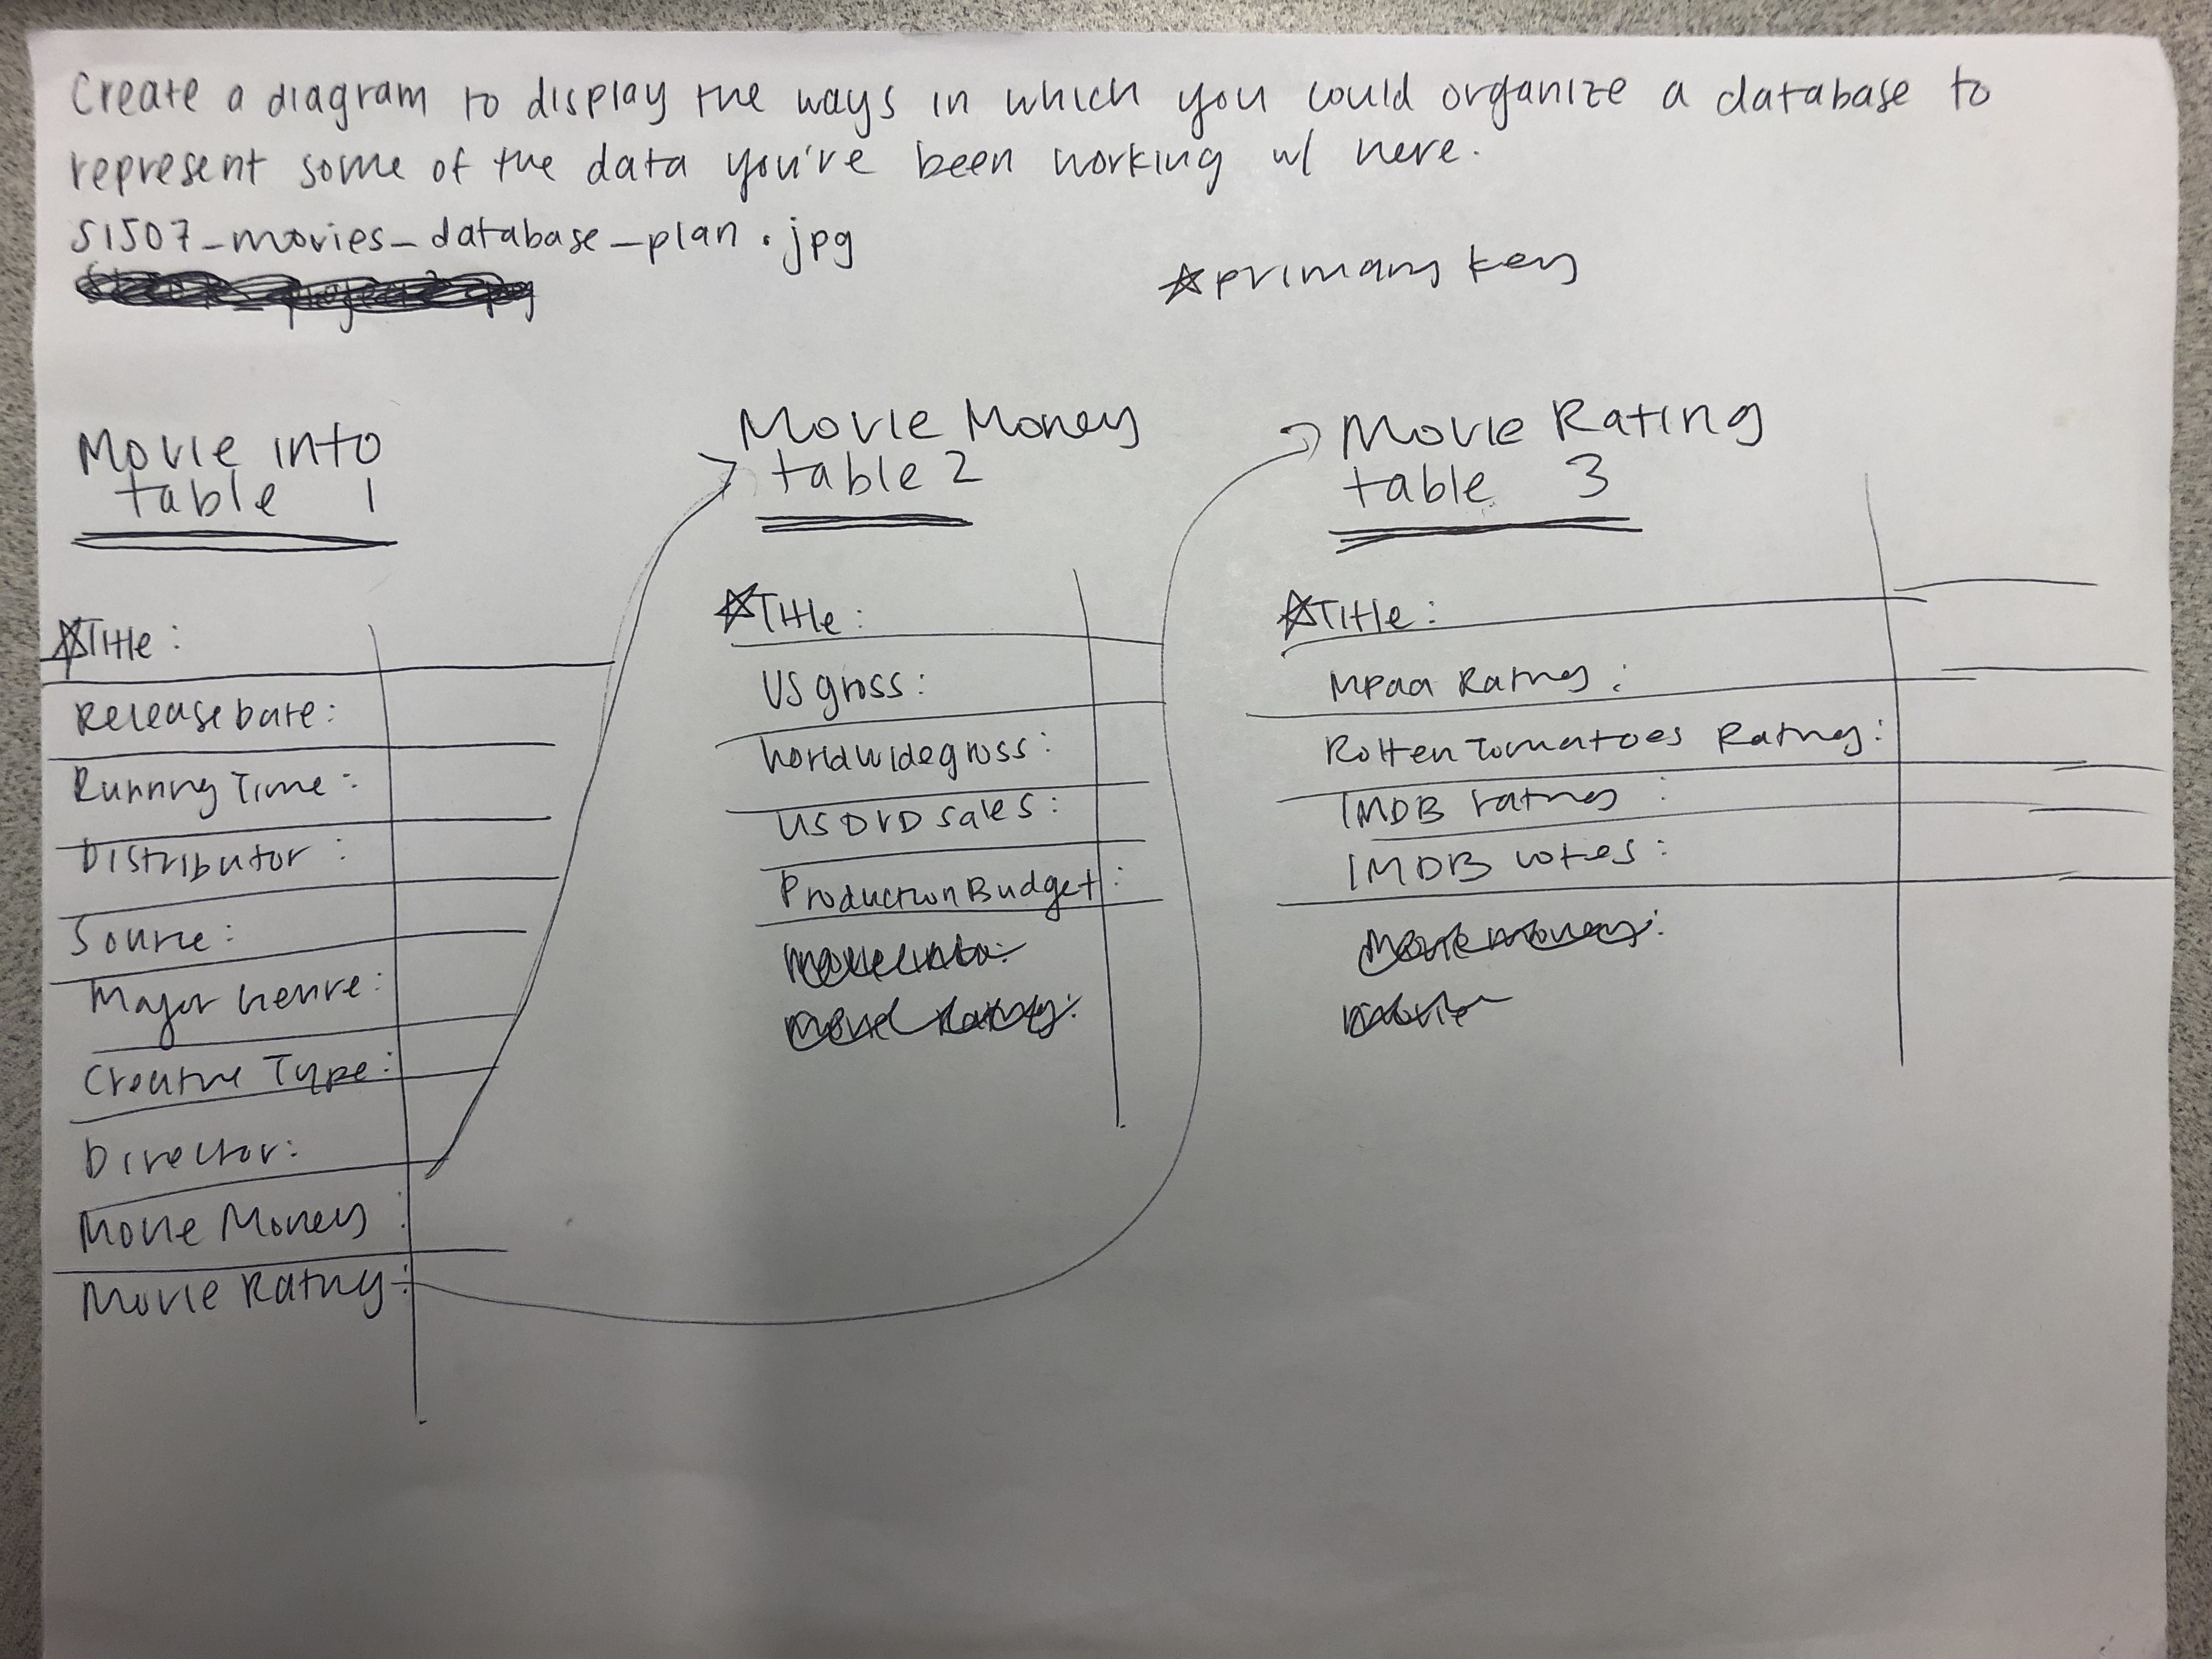 Create a diagram to display the ways in which you could organize a database to
represent some of the data you've been working w/ here.
SI507-movies-database-plan.jpg
☆ primary key
Movie info
table 1
☆ Title:
Release Date:
Running Time:
Distributor:
Source:
Major Genre:
Creative Type:
Director:
Movie Money:
Movie Rating:
Movie Money
table 2
☆ Title:
US gross:
Worldwide gross:
US DVD sales:
Production Budget:
Movie Rating
table 3
☆ Title:
MPAA Rating:
Rotten Tomatoes Rating:
IMDB rating:
IMDB votes: